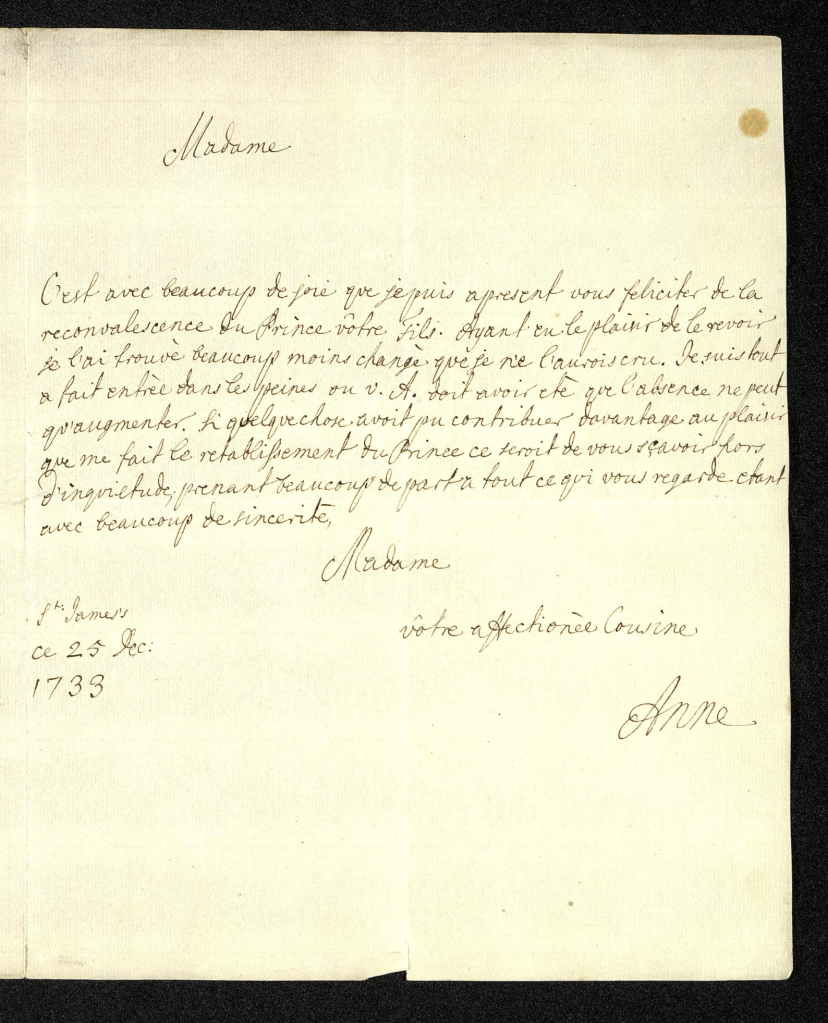 Madame
C'est avec beaucoup de joie que je puis apresent vous feliciter de la
reconvalescence du Prince vôtre Fils. Ayant eu le plaisir de le revoir
je l'ai trouvè beaucoup moins changè que je ne l'aurois cru. Je suis tout
a fait entrèe dans les peines ou v. A. doit avoir etè que l'absence ne peut
qu'augmenter. Si quelque chose avoit pu contribuer davantage au plaisir
que me fait le retablissement du Prince ce seroit de vous sçavoir hors
d'inquietude, prenant beaucoup de part a tout ce qui vous regarde etant
avec beaucoup de sincerité,
Madame
St: James's
ce 25 Dec:
1733
vôtre affectionèe Cousine
Anne